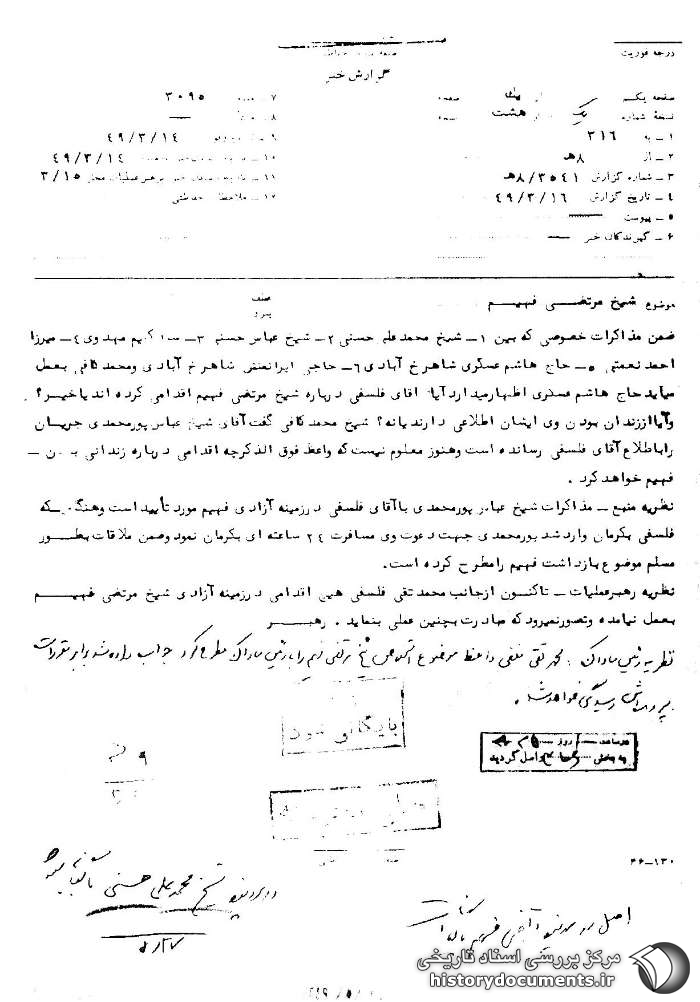 درجه فوریت
گزارش خبر
صفحه یک از یک صفحه
۷ـ ۳۰۹۵
نسخه شماره یک از هشت نسخه
۸ـ
۱ـ به ۳۱۶
۹ـ ۴۹/۳/۱۴
۲ـ از ۸هـ
۱۰ـ ۴۹/۳/۱۴
۳ـ شماره گزارش ۸/۳۵۴۱هـ
۱۱ـ رهبر عملیات محل ۳/۱۵
۴ـ تاریخ گزارش ۴۹/۳/۱۶
۱۲ـ ملاحظات حفاظتی
۵ـ پیوست
۶ـ گیرندگان خبر
موضوع شیخ مرتضی فهیم
عطف
پیرو
ضمن مذاکرات خصوصی که بین ۱ـ شیخ محمدعلی حسنی ۲ـ شیخ عباس حسنی ۳ـ مهدوی ۴ـ میرزا
احمد نعمتی ۵ـ حاج هاشم عسکری شاهرخ آبادی ۶ـ حاجی ایرانمنش شاهرخ آبادی ومحمدکافی بعمل
میآید حاج هاشم عسکری اظهارمیدارد آیا آقای فلسفی درباره شیخ مرتضی فهیم اقدامی کرده اند یاخیر؟
وآیا اززندان بودن وی ایشان اطلاعی دارند یانه؟ شیخ محمدکافی گفت آقای شیخ عباس پورمحمدی جریان
راباطلاع آقای فلسفی رسانده است وهنوز معلوم نیست که واعظ فوق الذکرچه اقدامی درباره زندانی بودن ـ
فهیم خواهد کرد .
نظریه منبع ـ مذاکرات شیخ عباس پورمحمدی باآقای فلسفی درزمینه آزادی فهیم مورد تأیید است وهنگامیکه
فلسفی بکرمان وارد شد پورمحمدی جهت دعوت وی مسافرت ۲۴ ساعته ای بکرمان نمود وضمن ملاقات بطور
مسلم موضوع بازداشت فهیم رامطرح کرده است.
نظریه رهبرعملیات ـ تاکنون ازجانب محمد تقی فلسفی هیچ اقدامی درزمینه آزادی شیخ مرتضی فهیم
بعمل نیامده وتصورنمیرود که مبادرت بچنین عملی بنماید . رهبر
نظریه رئیس ساواک : محمد تقی فلسفی واعظ موضوع شیخ مرتضی فهیم را با رئیس ساواک مطرح کرد جواب داده شد برابر مقررات
رسیدگی خواهد شد .
بایگانی شود
روز
به بخش واصل گردید
۴۶-۱۳۰
در پرونده شیخ محمدعلی حسنی بایگانی شود
اصل در پرونده
مرکز بررسی اسناد تاریخی
historydocuments.ir